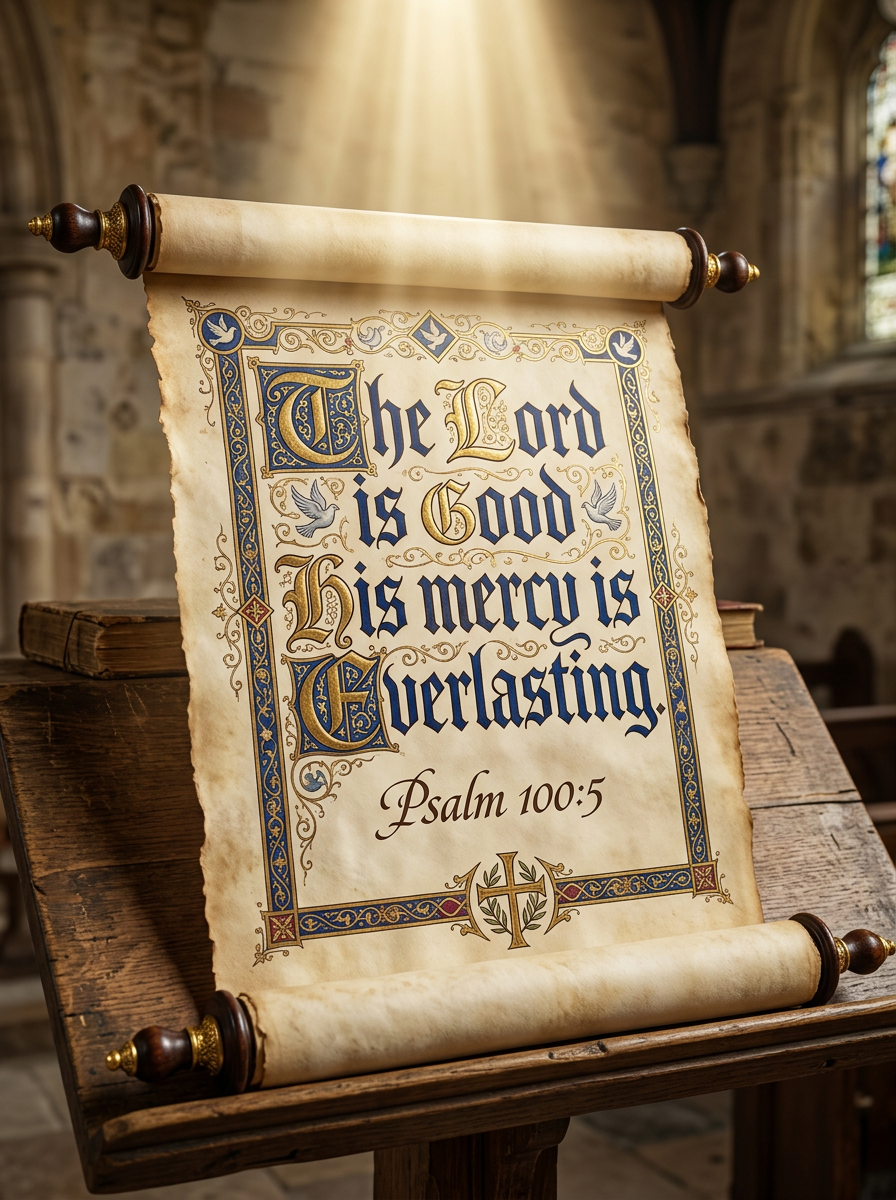 The Lord
is Good
His mercy is
Everlasting.
Psalm 100:5